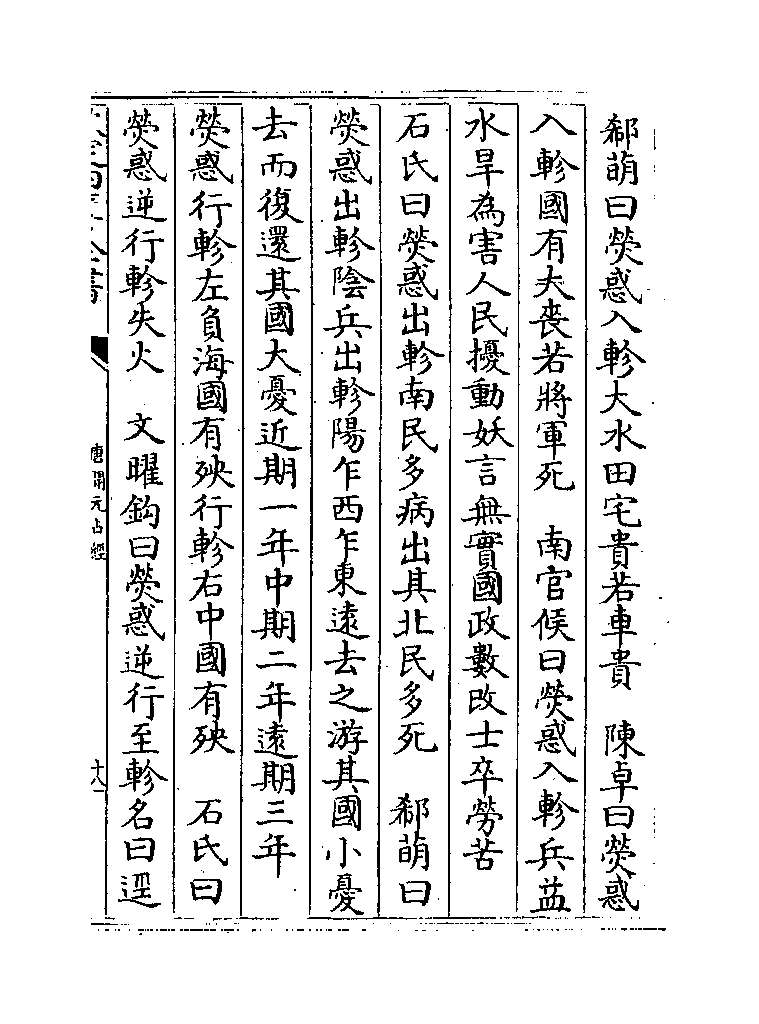 郗萌曰熒惑入軫大水田宅貴若車貴　陳卓曰熒惑
入軫國有大喪若將軍死　南官候曰熒惑入軫兵革
水旱為害人民擾動妖言無實國政數改士卒勞苦
石氏曰熒惑出軫南民多病出其北民多死　郗萌曰
熒惑出軫陰兵出軫陽乍西乍東遠去之游其國小憂
去而復還其國大憂近期一年中期二年遠期三年
熒惑行軫左負海國有殃行軫右中國有殃　石氏曰
熒惑逆行軫失火　文曜鈎曰熒惑逆行至軫名曰逕
唐開元占經